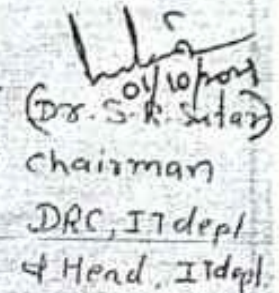 (Dr. S. R. Sutar)
Chairman
DRC, IT dept
& Head, IT dept.